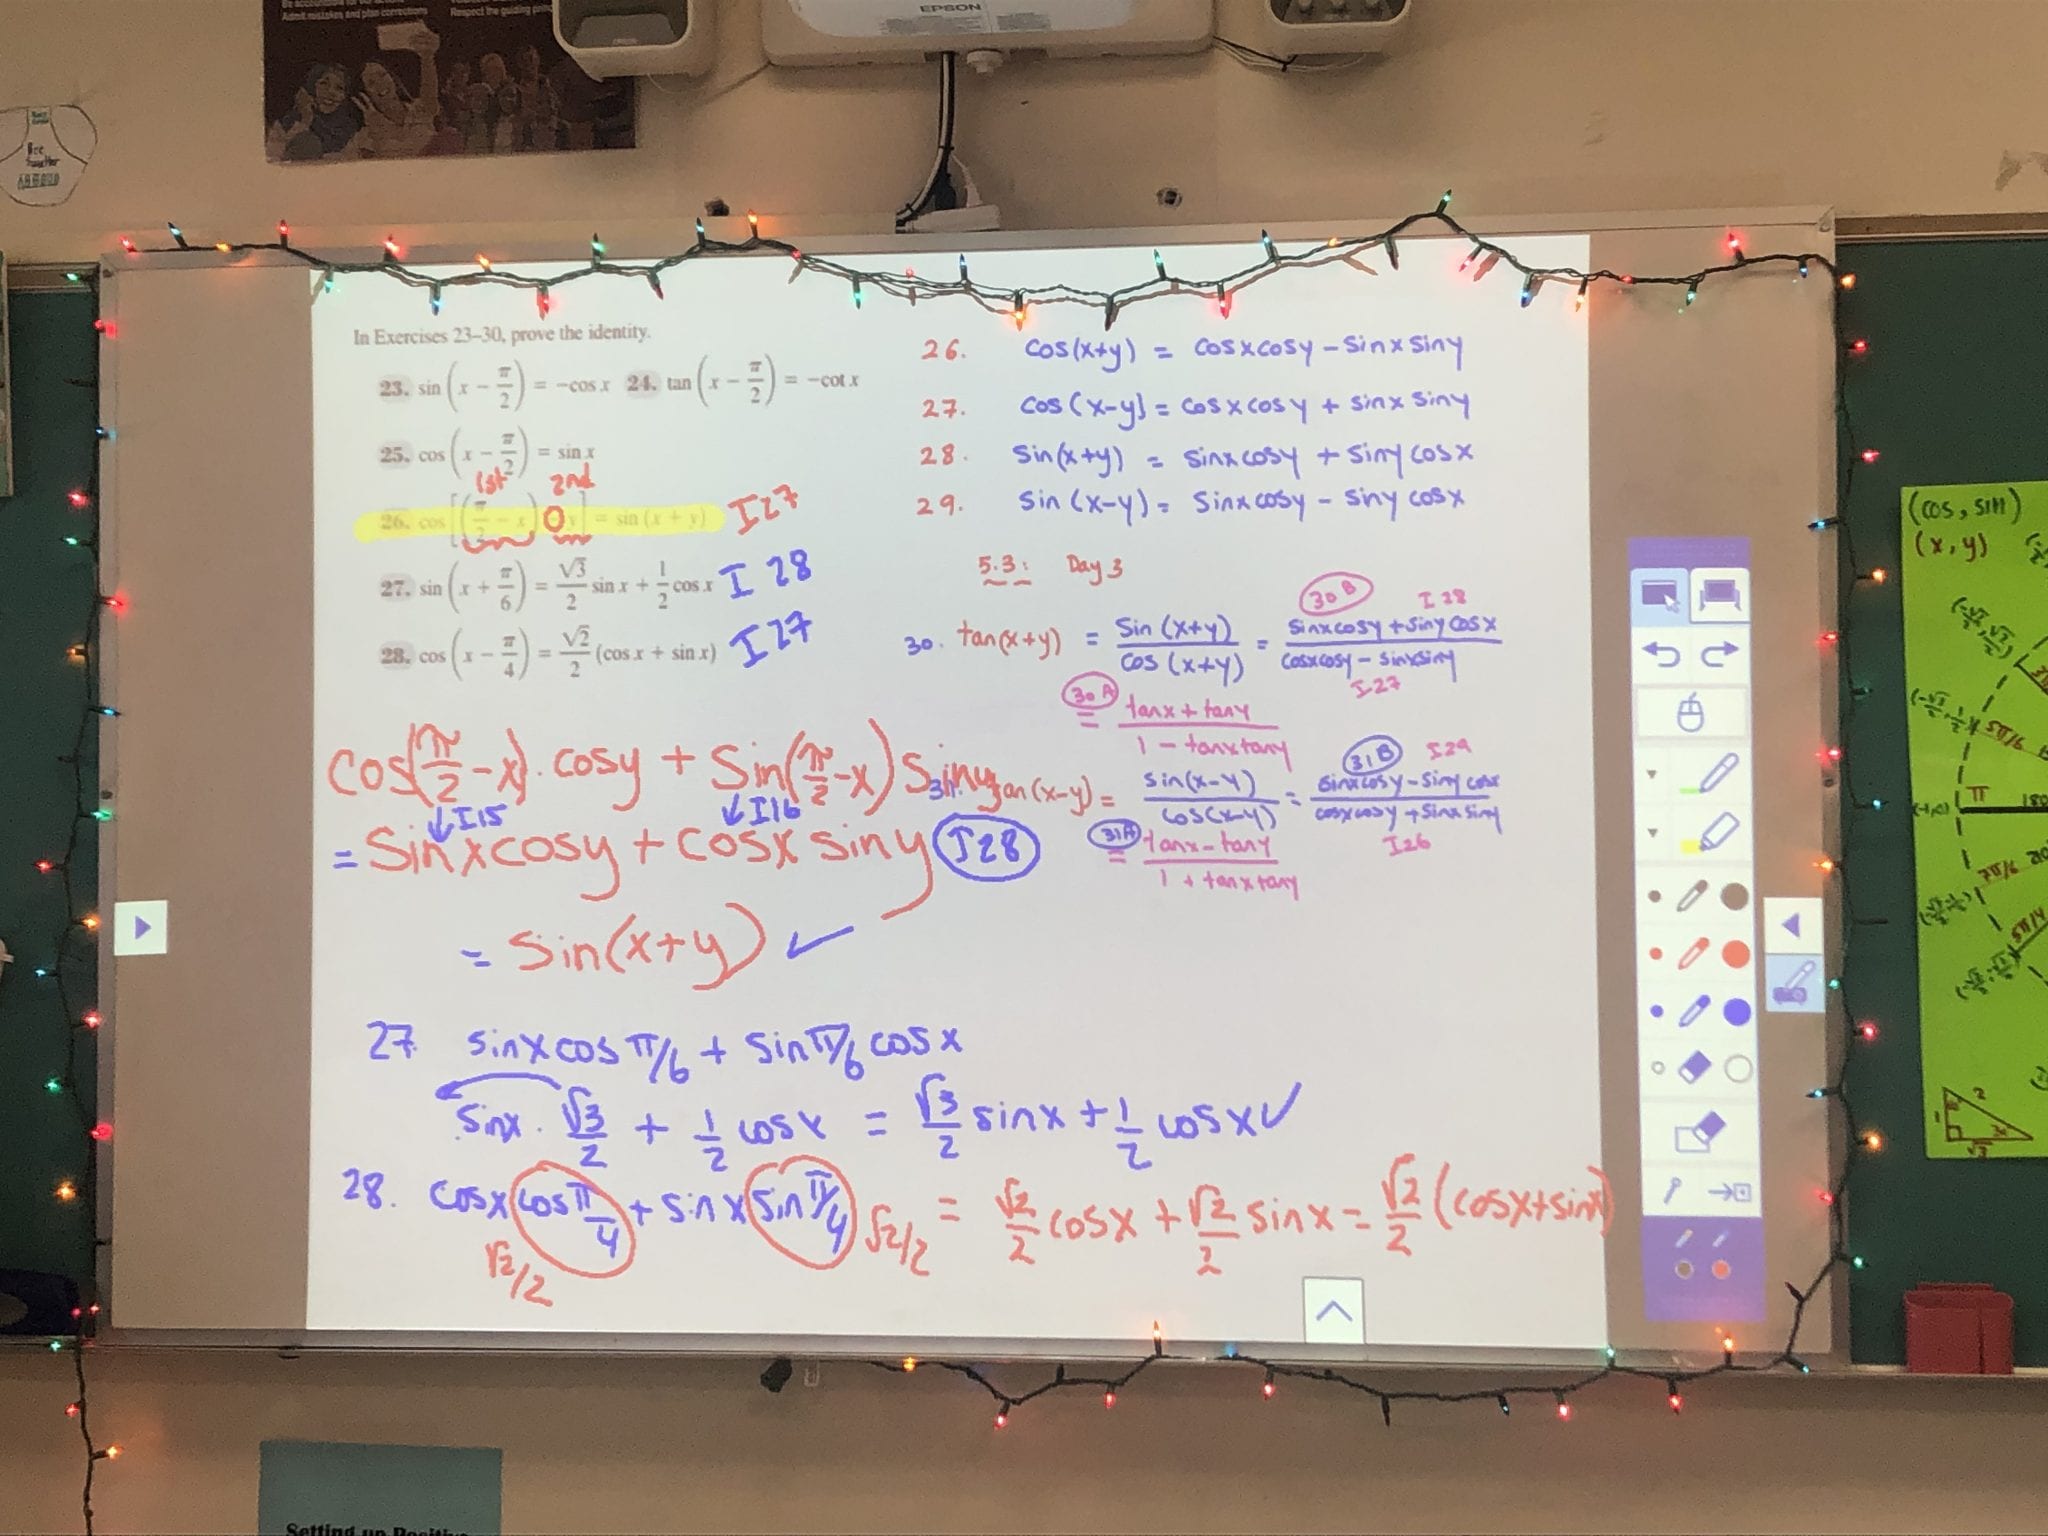 EPSON
Admit mistakes and plan corrections
In Exercises 23–30, prove the identity.
23. sin (x − π/2) = −cos x 24. tan (x − π/2) = −cot x
25. cos (x − π/2) = sin x
1st 2nd
26. cos [(π/2 − x) − y] = sin (x + y) I27
27. sin (x + π/6) = √3/2 sin x + 1/2 cos x I 28
28. cos (x − π/4) = √2/2 (cos x + sin x) I27
26. cos(x+y) = cosxcosy − sinx siny
27. cos (x−y) = cosxcosy + sinx siny
28. sin(x+y) = sinxcosy + siny cosx
29. sin (x−y) = sinxcosy − siny cosx
5.3: Day 3
30 B I 28
30. tan(x+y) = sin (x+y)/cos (x+y) = sinxcosy + siny cosx/cosxcosy − sinxsiny
I27
30A
= tanx + tany/1 − tanxtany
31B I29
31. tan(x−y) = sin(x−y)/cos(x−y) = sinxcosy − siny cosx/cosxcosy + sinxsiny
I26
31A
= tanx − tany/1 + tanxtany
cos(π/2 − x) · cosy + sin(π/2 − x) siny
↓I15 ↓I16
= sinxcosy + cosx siny I28
= sin(x+y) ✓
27. sinxcos π/6 + sin π/6 cosx
sinx · √3/2 + 1/2 cosx = √3/2 sinx + 1/2 cosx ✓
28. cosx cos π/4 + sinx sin π/4 = √2/2 cosx + √2/2 sinx = √2/2 (cosx + sinx)
√2/2 √2/2
(cos, sin)
(x, y)
5π/6
π 180
7π/6
5π/4
1 2
√3
Setting up